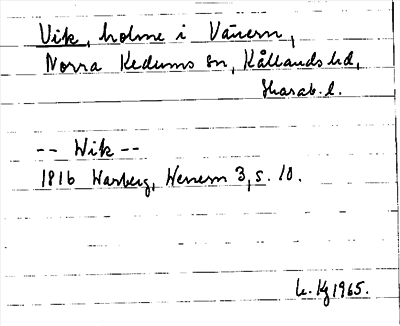 Vik, holme i Vänern,
Norra Kedums sn, Kållands hd,
Skarab. l.
-- Wik --
1816 Warberg, Wenern 3, s. 10.
1965.